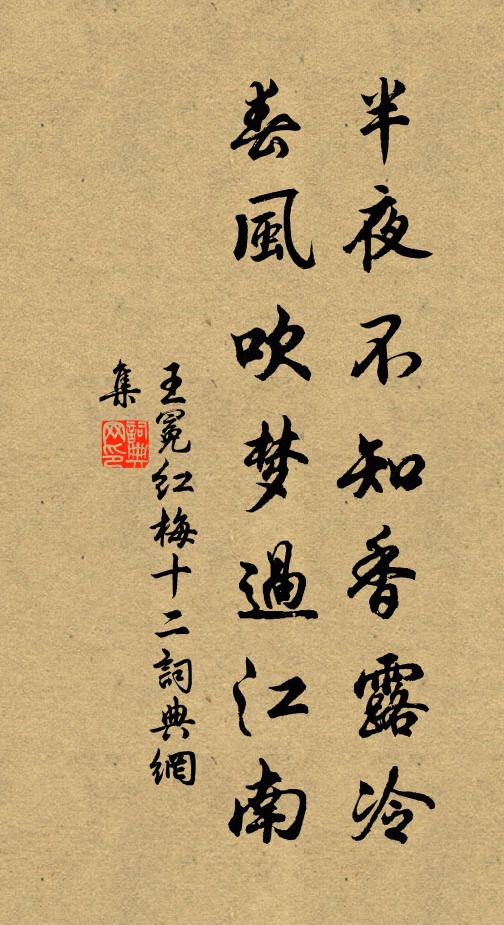 半夜不知香露冷
春風吹梦過江南
王冕红梅十二詞典網
集
詞典
网印